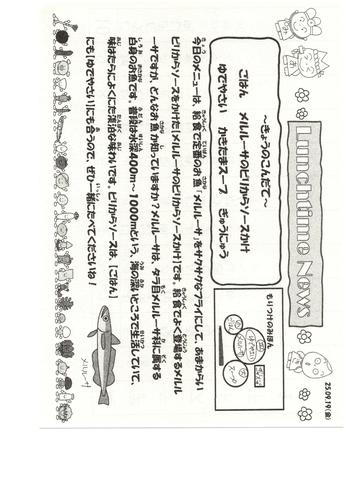 Lunchtime News
25.09.19(金)
～きょうのこんだて～
ごはん　メルルーサのピリからソースかけ
ゆでやさい　かきたまスープ　ぎゅうにゅう
もりつけのみほん
今日のメニューは、給食で定番のお魚「メルルーサ」をサクサクなフライにして、あまからい
ピリからソースをかけた「メルルーサのピリからソースかけ」です。給食でよく登場するメルル
ーサですが、どんなお魚か知っていますか？メルルーサは、タラ目メルルーサ科に属する
白身のお魚です。普段は水深400m～1000mという、海の深いところで生活していて、
味はたらによくにた淡泊な味わいです。ピリからソースは、「ごはん」
にも「ゆでやさい」にも合うので、ぜひ一緒にたべてくださいね！
メルルーサ